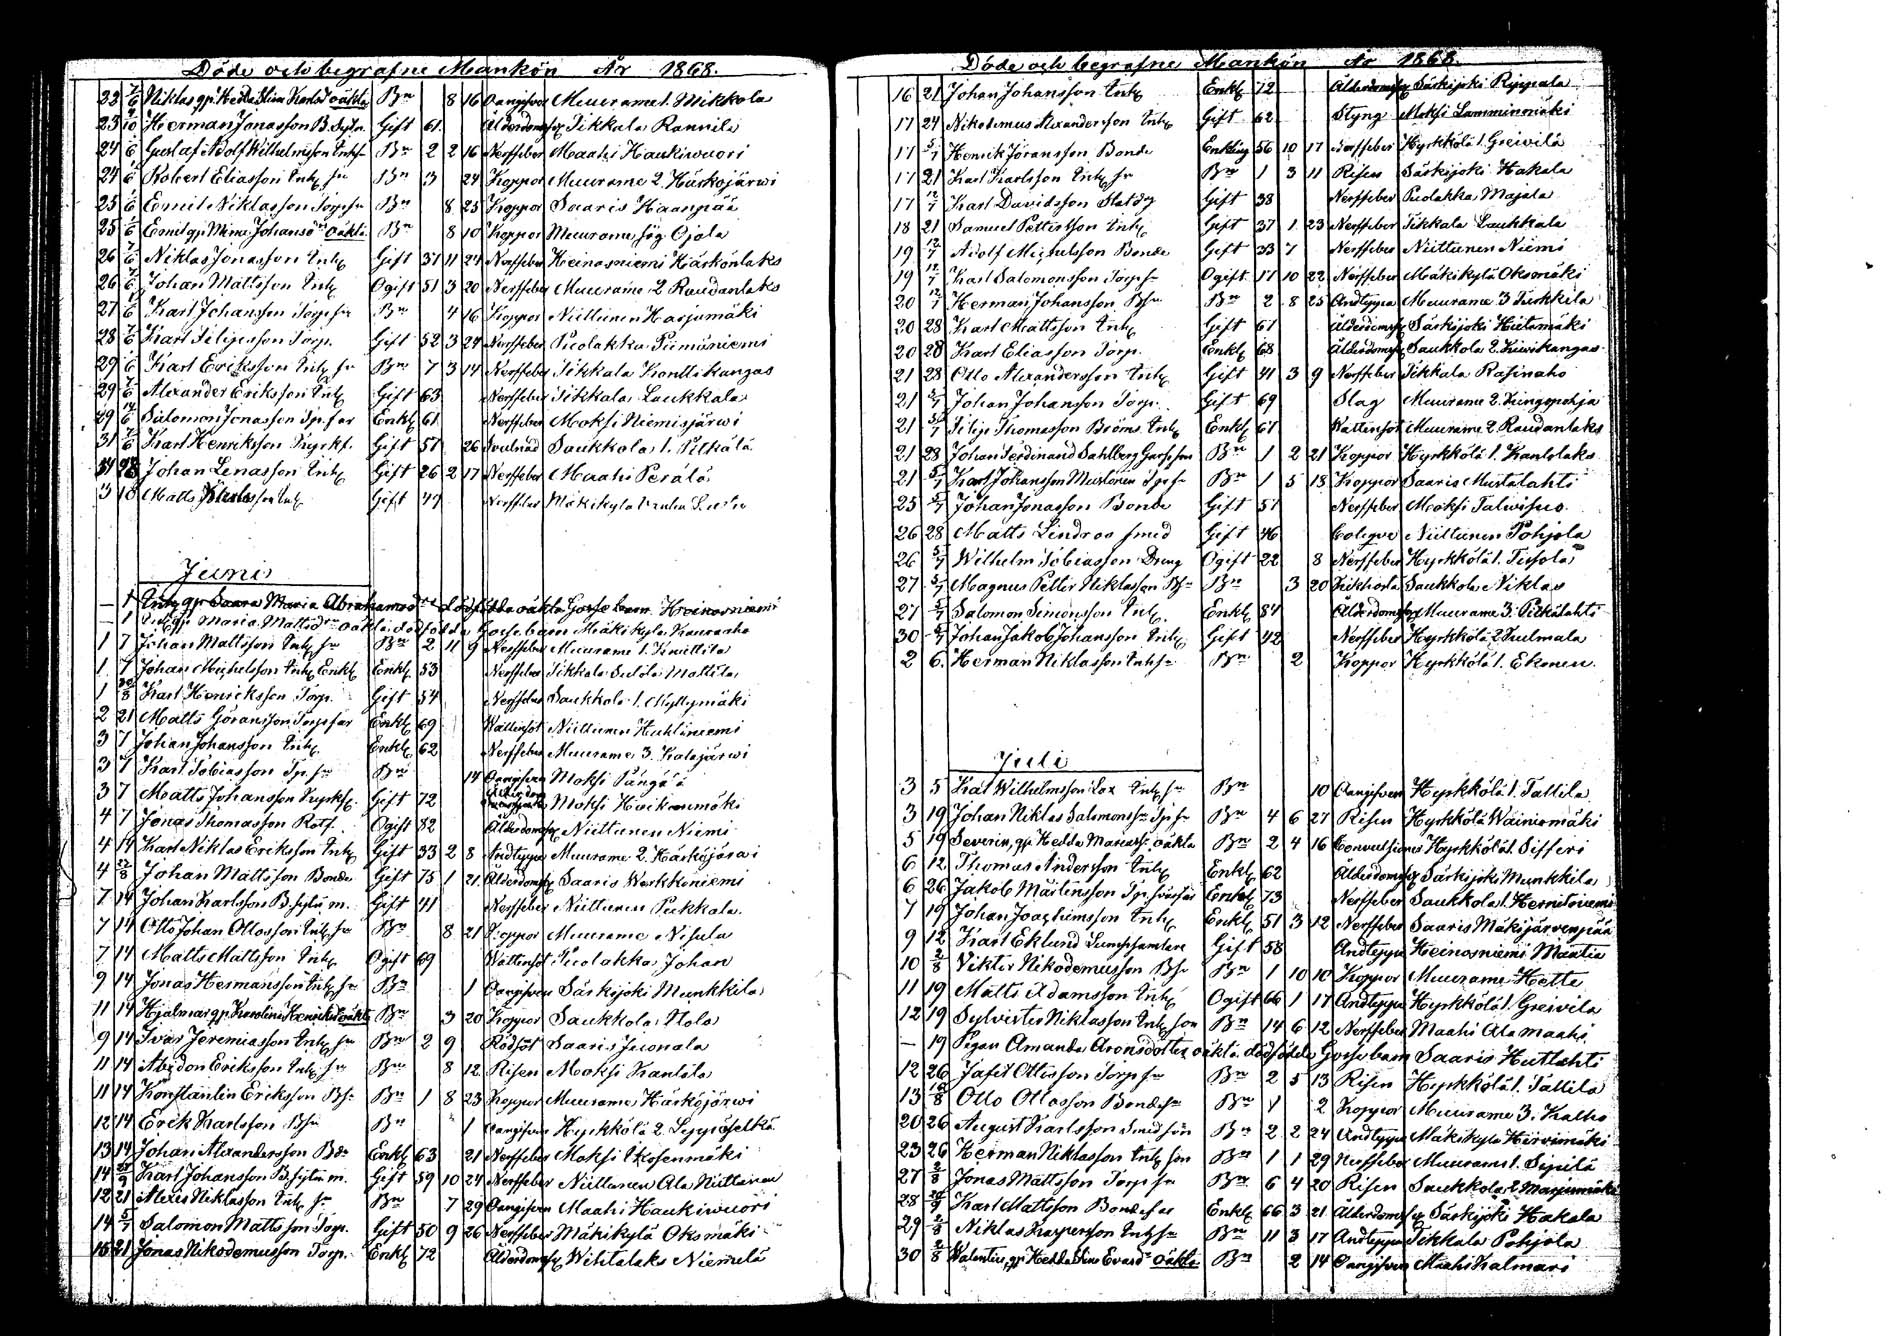 Döde och begrafne Mankön År 1868.
22 7/6 Niklas gp. Hedda Stina Karlsd oäkta Bn 8 16 Oangifven Muurame 1. Mikkola
23 Herman Jonasson B. Sytn. Gift 61 Ålderdomsf Tikkala Rannila
24 Gustaf Adolf Wilhelmsson Bn 2 2 16 Nerffeber Maahi Haukiwuori
24 Robert Eliasson Inh sn Bn 3 24 Koppor Muurame 2. Härköjärwi
25 Emil Niklasson Torp sn Bn 8 25 Koppor Saaris Haanpää
25 Emil gp. Mina Johansd oäkta Bn 8 10 Koppor Muurame Ojala
26 7/6 Niklas Jonasson Inh Gift 37 11 24 Nerffeber Heinosniemi Härkönlaks
26 7/6 Johan Mattsson Inh Ogift 51 3 20 Nerffeber Muurame 2 Raudanlaks
27 Karl Johansson Torp sn Bn 4 16 Koppor Niittunen Harjumäki
28 7/6 Karl Filipsson Torp. Gift 52 3 24 Nerffeber Puolakka Piimäniemi
29 Karl Ericksson Inh sn Bn 7 3 14 Nerffeber Tikkala Konttikangas
29 7/6 Alexander Eriksson Inh Gift 63 Nerffeber Tikkala Laukkala
29 14/6 Salomon Jonasson Tp. far Enkl 61 Nerffeber Moksi Niemisjärwi
31 7/6 Karl Henriksson Gift 51 26 Saukkola 1. Pitkälä
Johan Lenasson Inh Gift 26 2 17 Nerffeber Maahi Perälä
3 18 Matts Gift 47 Nerffeber Mäkikylä
Juni
— 1 Inh gp Saara Maria Abrahamsdr dödfödda oäkta Gossebarn Heinosniemi
— 1 Maria Mattsdr oäkta dödfödda Gossebarn Mäkikylä
1 7 Johan Mattsson Inh sn Bn 2 11 9 Nerffeber Muurame 1. Knuttila
1 7 Johan Michelsson Inh Enkl Enkl 53 Nerffeber Tikkala Mattila
1 Karl Henricksson Torp. Gift 54 Nerffeber Saukkola 1. Myllymäki
2 21 Matts Göransson Torp far Enkl 69 Wattensot Niittunen Huhtiniemi
3 7 Johan Johansson Inh. Enkl 62 Nerffeber Muurame 3. Kalajärwi
3 7 Karl Tobiasson Tp. sn Bn 14 Oangifven Moksi
3 7 Matts Johansson Gift 72 Moksi
4 7 Jonas Thomasson Rotf. Ogift 82 Ålderdomsf Niittunen Niemi
4 14 Karl Niklas Ericksson Inh Gift 33 2 8 Andteppa Muurame 2. Härköjärwi
4 Johan Mattsson Bonde Gift 75 1 21 Ålderdomsf Saaris Werkkoniemi
7 14 Johan Karlsson B. sytn m. Gift 41 Nerffeber Niittunen Pukkala
7 14 Otto Johan Ottosson Inh sn Bn 8 21 Koppor Muurame Nisula
7 14 Matts Mattsson Inh Ogift 69 Wattensot Puolakka Johan
9 14 Jonas Hermansson Inh sn Bn 1 Oangifven Särkijoki Munkkila
11 14 Hjalmar gp. Karolina Henricksd oäkta Bn 3 20 Koppor Saukkola
9 14 Ivar Jeremiasson Inh sn Bn 2 9 Rödsot Saaris Juonala
11 14 Abdon Ericksson Inh sn Bn 8 12 Risen Moksi Kantola
11 14 Konstantin Ericksson Bsn Bn 1 8 23 Koppor Muurame Härköjärwi
12 14 Erick Karlsson Bsn Bn 1 Oangifven Hyrkkölä 2. Seppäselkä
13 14 Johan Alexandersson Bde Enkl 63 21 Nerffeber Moksi
14 Karl Johansson B. sytn m. Gift 59 10 24 Nerffeber Niittunen Ala Niittunen
12 21 Alexis Niklasson Inh sn Bn 7 29 Oangifven Maahi Haukiwuori
14 5/7 Salomon Mattsson Torp. Gift 50 9 26 Nerffeber Mäkikylä Oksmäki
15 21 Jonas Nikodemusson Torp. Enkl 72 Ålderdomsf Wihtalaks Niemelä
Döde och begrafne Mankön År 1868.
16 21 Johan Johansson Inh Enkl 72 Ålderdomsf Särkijoki Reppala
17 24 Nikodemus Alexandersson Inh Gift 62 Styng Moksi Lamminmäki
17 5/7 Henrik Göransson Bonde Enkling 56 10 17 Nerffeber Hyrkkölä 1. Greivilä
17 21 Karl Karlsson Inh sn Bn 1 3 11 Risen Särkijoki Hakala
17 12/7 Karl Davidsson Gift 38 Nerffeber Puolakka Majala
18 21 Samuel Pettersson Inh Gift 37 1 23 Nerffeber Tikkala Laukkala
19 12/7 Adolf Michelsson Bonde Gift 33 7 Nerffeber Niittunen Niemi
19 12/7 Karl Salomonsson Torp sn Ogift 17 10 22 Nerffeber Mäkikylä Oksmäki
20 12/7 Herman Johansson Bsn Bn 2 8 25 Andteppa Muurame 3
20 28 Karl Mattsson Inh Gift 61 Ålderdomsf Särkijoki Hietamäki
20 28 Karl Eliasson Torp. Enkl 68 Ålderdomsf Saukkola 2. Kiwikangas
21 28 Otto Alexandersson Inh Gift 41 3 9 Nerffeber Tikkala Rasinaho
21 5/7 Johan Johansson Torp. Gift 69 Slag Muurame 2.
21 5/7 Filip Thomasson Broms Inh Enkl 61 Wattensot Muurame 2 Raudanlaks
21 28 Johan Ferdinand Sahlberg Bn 1 2 21 Koppor Hyrkkölä 1.
21 5/7 Karl Johansson Bn 1 5 13 Koppor Saaris Mustalahti
25 5/7 Johan Jonasson Bonde Gift 51 Nerffeber Moksi Talwisuo
26 28 Matts Lindroos smed Gift 46 Niittunen Pohjola
26 5/7 Wilhelm Tobiasson Dreng Ogift 22 8 Nerffeber Hyrkkölä 1.
27 5/7 Magnus Petter Niklasson Bsn Bn 3 20 Kikhosta Saukkola Niklas
27 5/7 Salomon Simonsson Inh. Enkl 84 Ålderdomsf Muurame 3. Pitkälahti
30 5/7 Johan Jakob Johansson Inh Gift 42 Nerffeber Hyrkkölä 2 Kulmala
2 6. Herman Niklasson Inh sn Bn 2 Koppor Hyrkkölä 1. Ekonen.
Juli
3 5 Karl Wilhelmsson Lax Inh sn Bn 10 Oangifven Hyrkkölä 1. Tattila
3 19 Johan Niklas Salomonsson Tp sn Bn 4 6 27 Risen Hyrkkölä Wainiomäki
5 19 Severin, gp Hedda Mariasd. oäkta Bn 2 4 16 Convulsiones Hyrkkölä 1. Sifferi
6 12 Thomas Andersson Inh Enkl 62 Ålderdomsf Särkijoki Munkkila
6 26 Jakob Mårtensson Tp. svärfar Enkl 73 Nerffeber Saukkola 1. Herniloniemi
7 19 Johan Joachimsson Inh Enkl 51 3 12 Nerffeber Saaris Mäkijärwenpää
9 12 Karl Eklund Lumpsamlare Gift 58 Andteppa Heinosniemi Mäntlä
10 2/8 Viktor Nikodemusson Bsn Bn 1 10 10 Koppor Muurame Hette
11 19 Matts Adamsson Inh Ogift 66 1 17 Andteppa Hyrkkölä 1. Greivila
12 19 Sylvester Niklasson Inh son Bn 14 6 12 Nerffeber Maahi Ala maahi
— 19 Pigan Amanda Aronsdotters oäkta dödfödde Gossebarn Saaris Huttahti
12 26 Jafet Ottosson Torp sn Bn 2 5 13 Risen Hyrkkölä 1. Tattila
13 Otto Ottosson Bondesn Bn 1 2 Koppor Muurame 3. Kalho
20 26 August Karlsson Smed sön Bn 2 2 24 Andteppa Mäkikylä Hirvimäki
23 26 Herman Niklasson Inh son Bn 1 1 29 Nerffeber Muurame 1. Sipilä
27 2/8 Jonas Mattsson Torp sn Bn 6 4 20 Risen Saukkola 2 Marjumäki
28 Karl Mattsson Bondefar Enkl 66 3 21 Ålderdomsf Särkijoki Hakala
29 2/8 Niklas Kaspersson Inh sn Bn 11 3 17 Andteppa Tikkala Pohjola
30 2/8 Walentin, gp Hedda Stina Evasdr oäkta Bn 2 14 Oangifven Maahi Kalmari